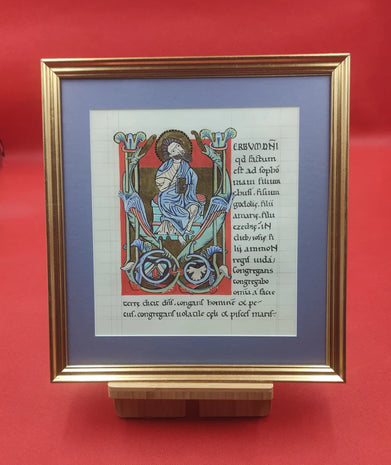 ERBVM DÑI
qd factum
est ad sopho
niam filium
chusi. filium
godolie. filii
amarie. filii
ezechie. IN
dieb; iosie fi
lii ammoN
regis iuda.
Congregans
congregabo
omia a facie
terre dicit dñs. congrans hominē et pe-
cus. congregans uolatile cęli et pisces maris.